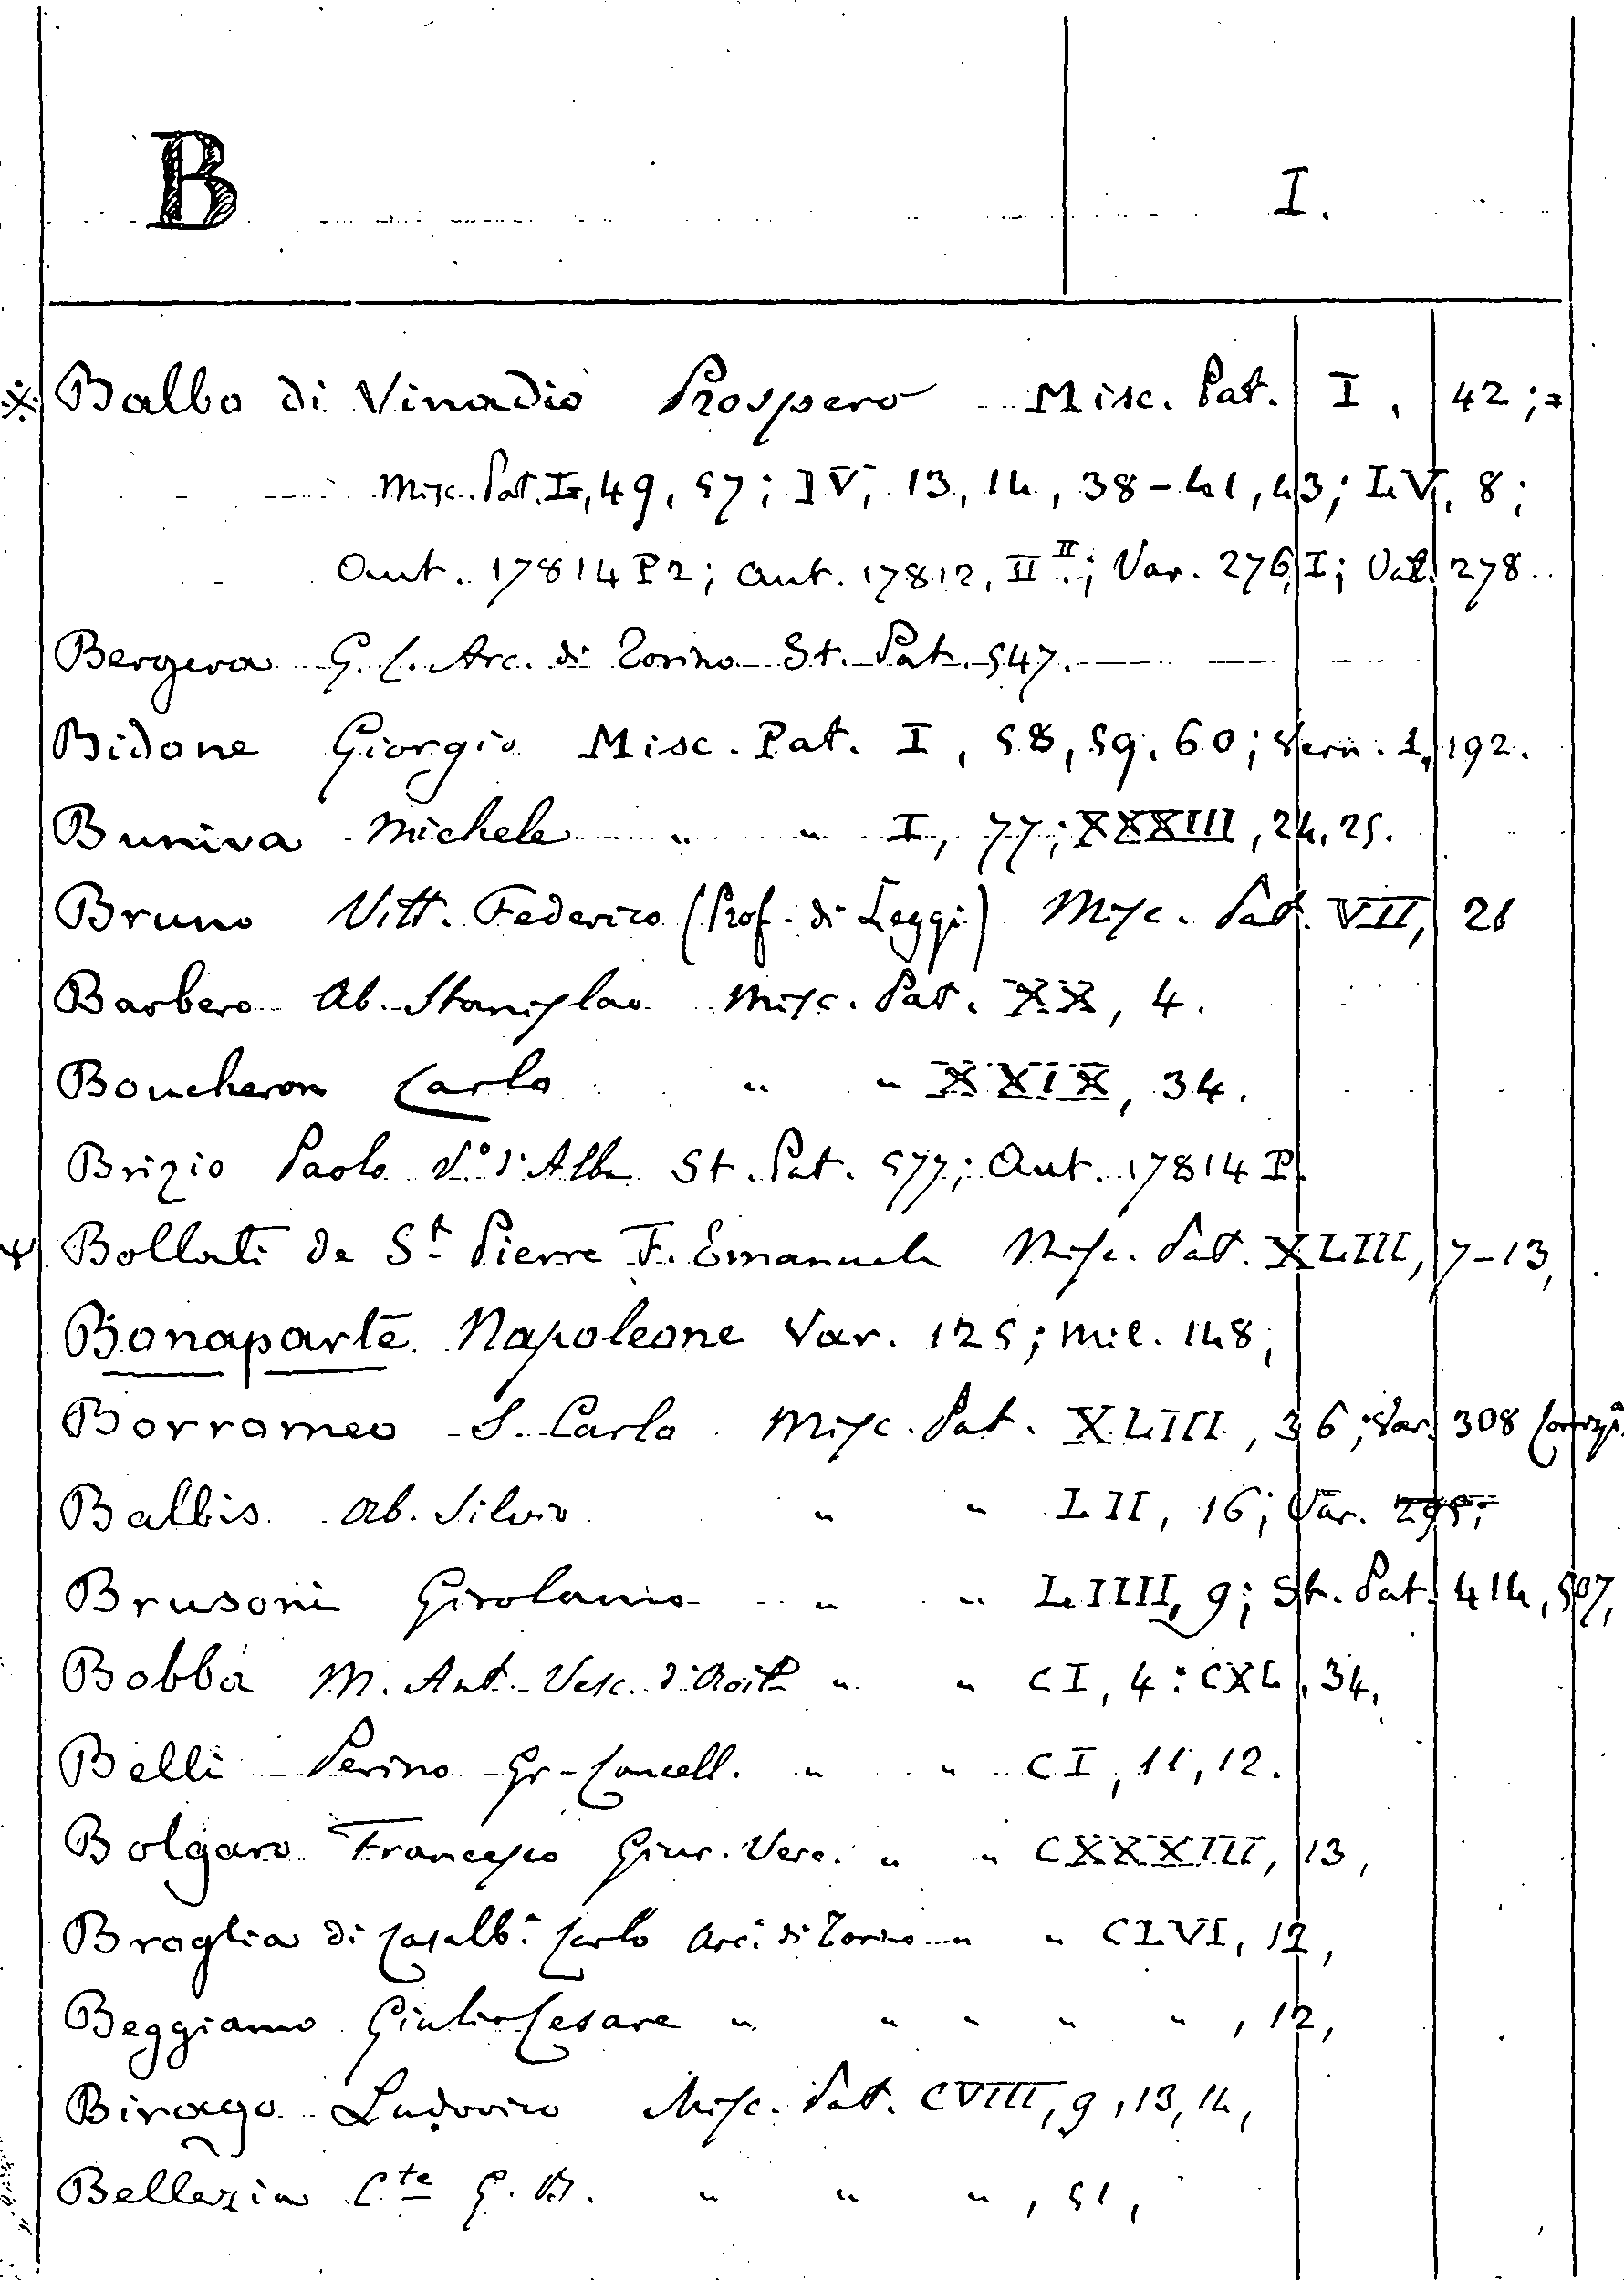 B I.
Balbo di Vinadio Prospero Misc. Pat. I, 42;
Misc. Pat. I, 49, 57; IV, 13, 14, 38-41, 43; LV, 8;
Aut. 17814 P2; Aut. 17812, II II; Var. 276, I; Var. 278
Bergera G. L. Arc. di Torino St. Pat. 547.
Bidone Giorgio Misc. Pat. I, 58, 59, 60; Vern. 1, 192.
Buniva Michele " " I, 77; XXXIII, 24, 25.
Bruno Vitt. Federico (Prof. di Leggi) Misc. Pat. VII, 21
Barbero Ab. Stanislao Misc. Pat. XX, 4.
Boucheron Carlo " " XXIX, 34.
Brizio Paolo V.o d'Alba St. Pat. 577; Aut. 17814 P.
Bollati de St Pierre F. Emanuele Misc. Pat. XLIII, 7-13,
Bonaparte Napoleone Var. 125; Mil. 148;
Borromeo S. Carlo Misc. Pat. XLIII, 36; Var. 308
Balbis Ab. Silvio " " LII, 16; Var. 295;
Brusoni Girolamo " " LIIII, 9; St. Pat. 414, 507,
Bobba M. Ant. Vesc. d'Aosta " " CI, 4: CXL, 34,
Belli Perino Gr. Cancell. " " CI, 11, 12.
Bolgaro Francesco Giur. Verc. " " CXXXIII, 13,
Broglia di Casalb. Carlo Arc. di Torino " " CLVI, 12,
Beggiamo Giulio Cesare " " " " ", 12,
Birago Ludovico Misc. Pat. CVIII, 9, 13, 14,
Bellezia C.te G. B. " " ", 51,